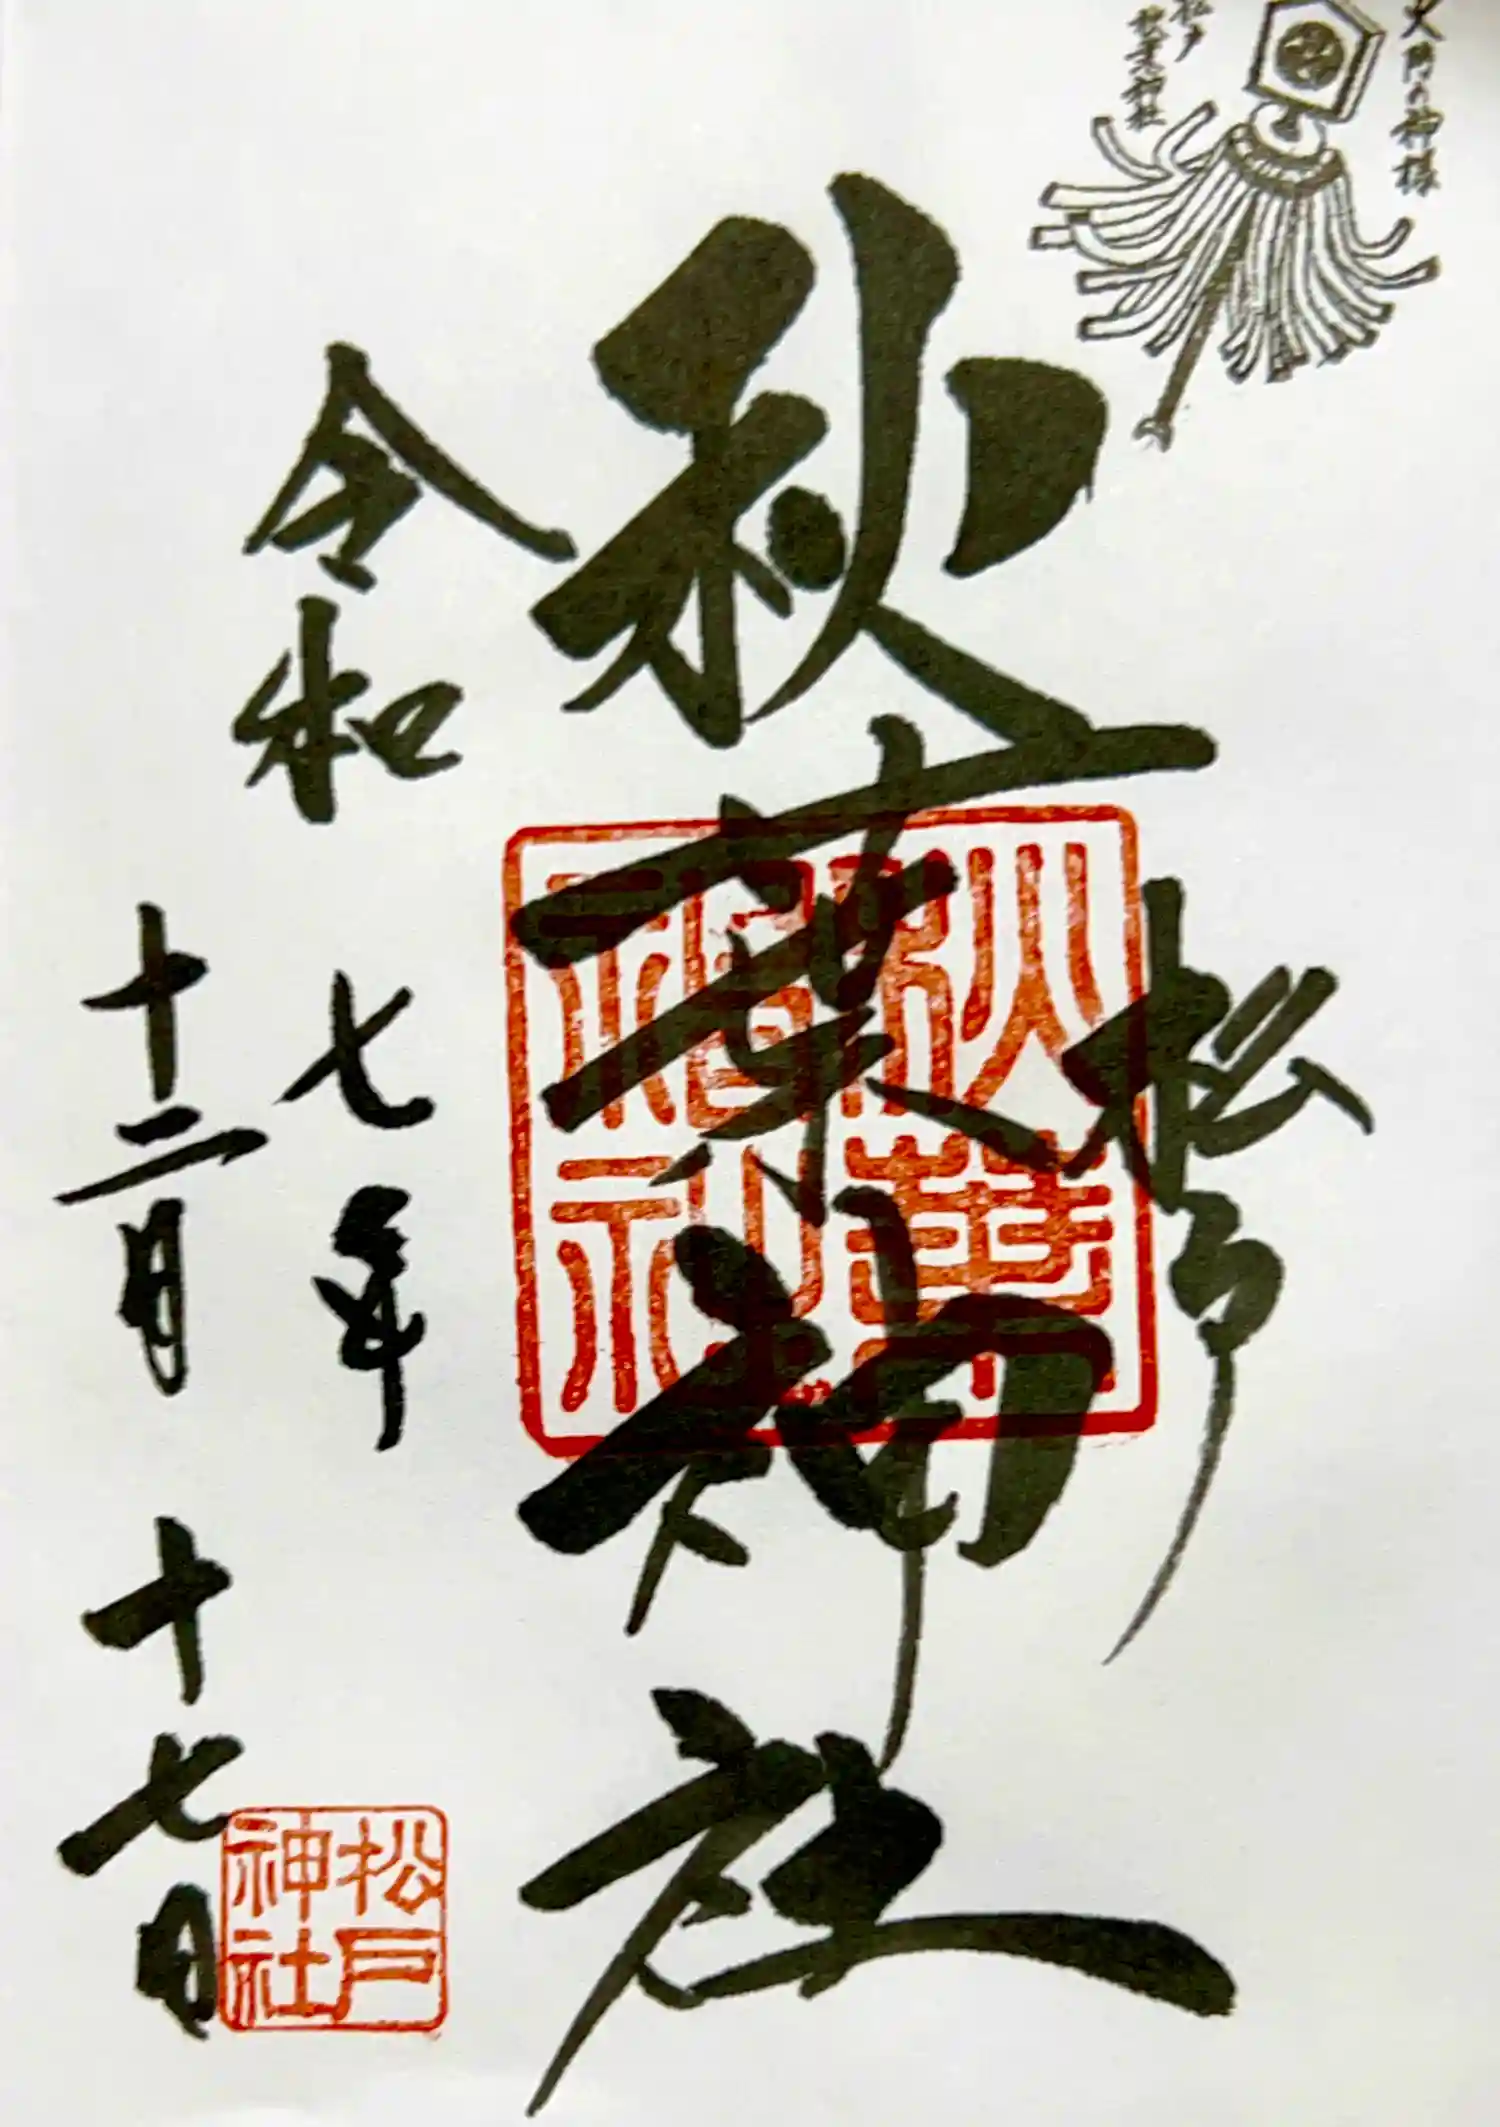 火防の神様
松戸
秋葉神社
松戸
秋葉神社
秋葉神社
令和
七年
十二月
十七日
松戸
神社